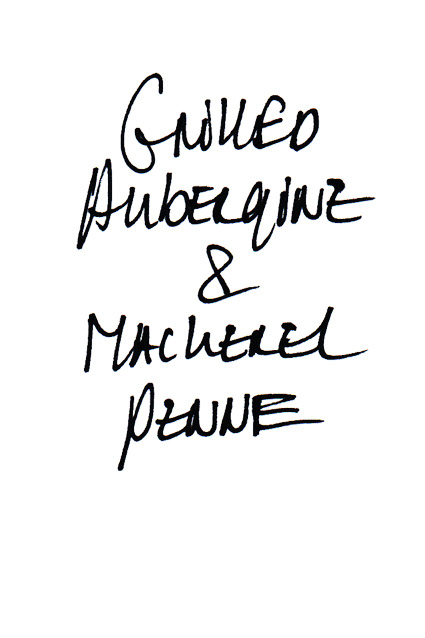 Grilled
Aubergine
&
Mackerel
Penne